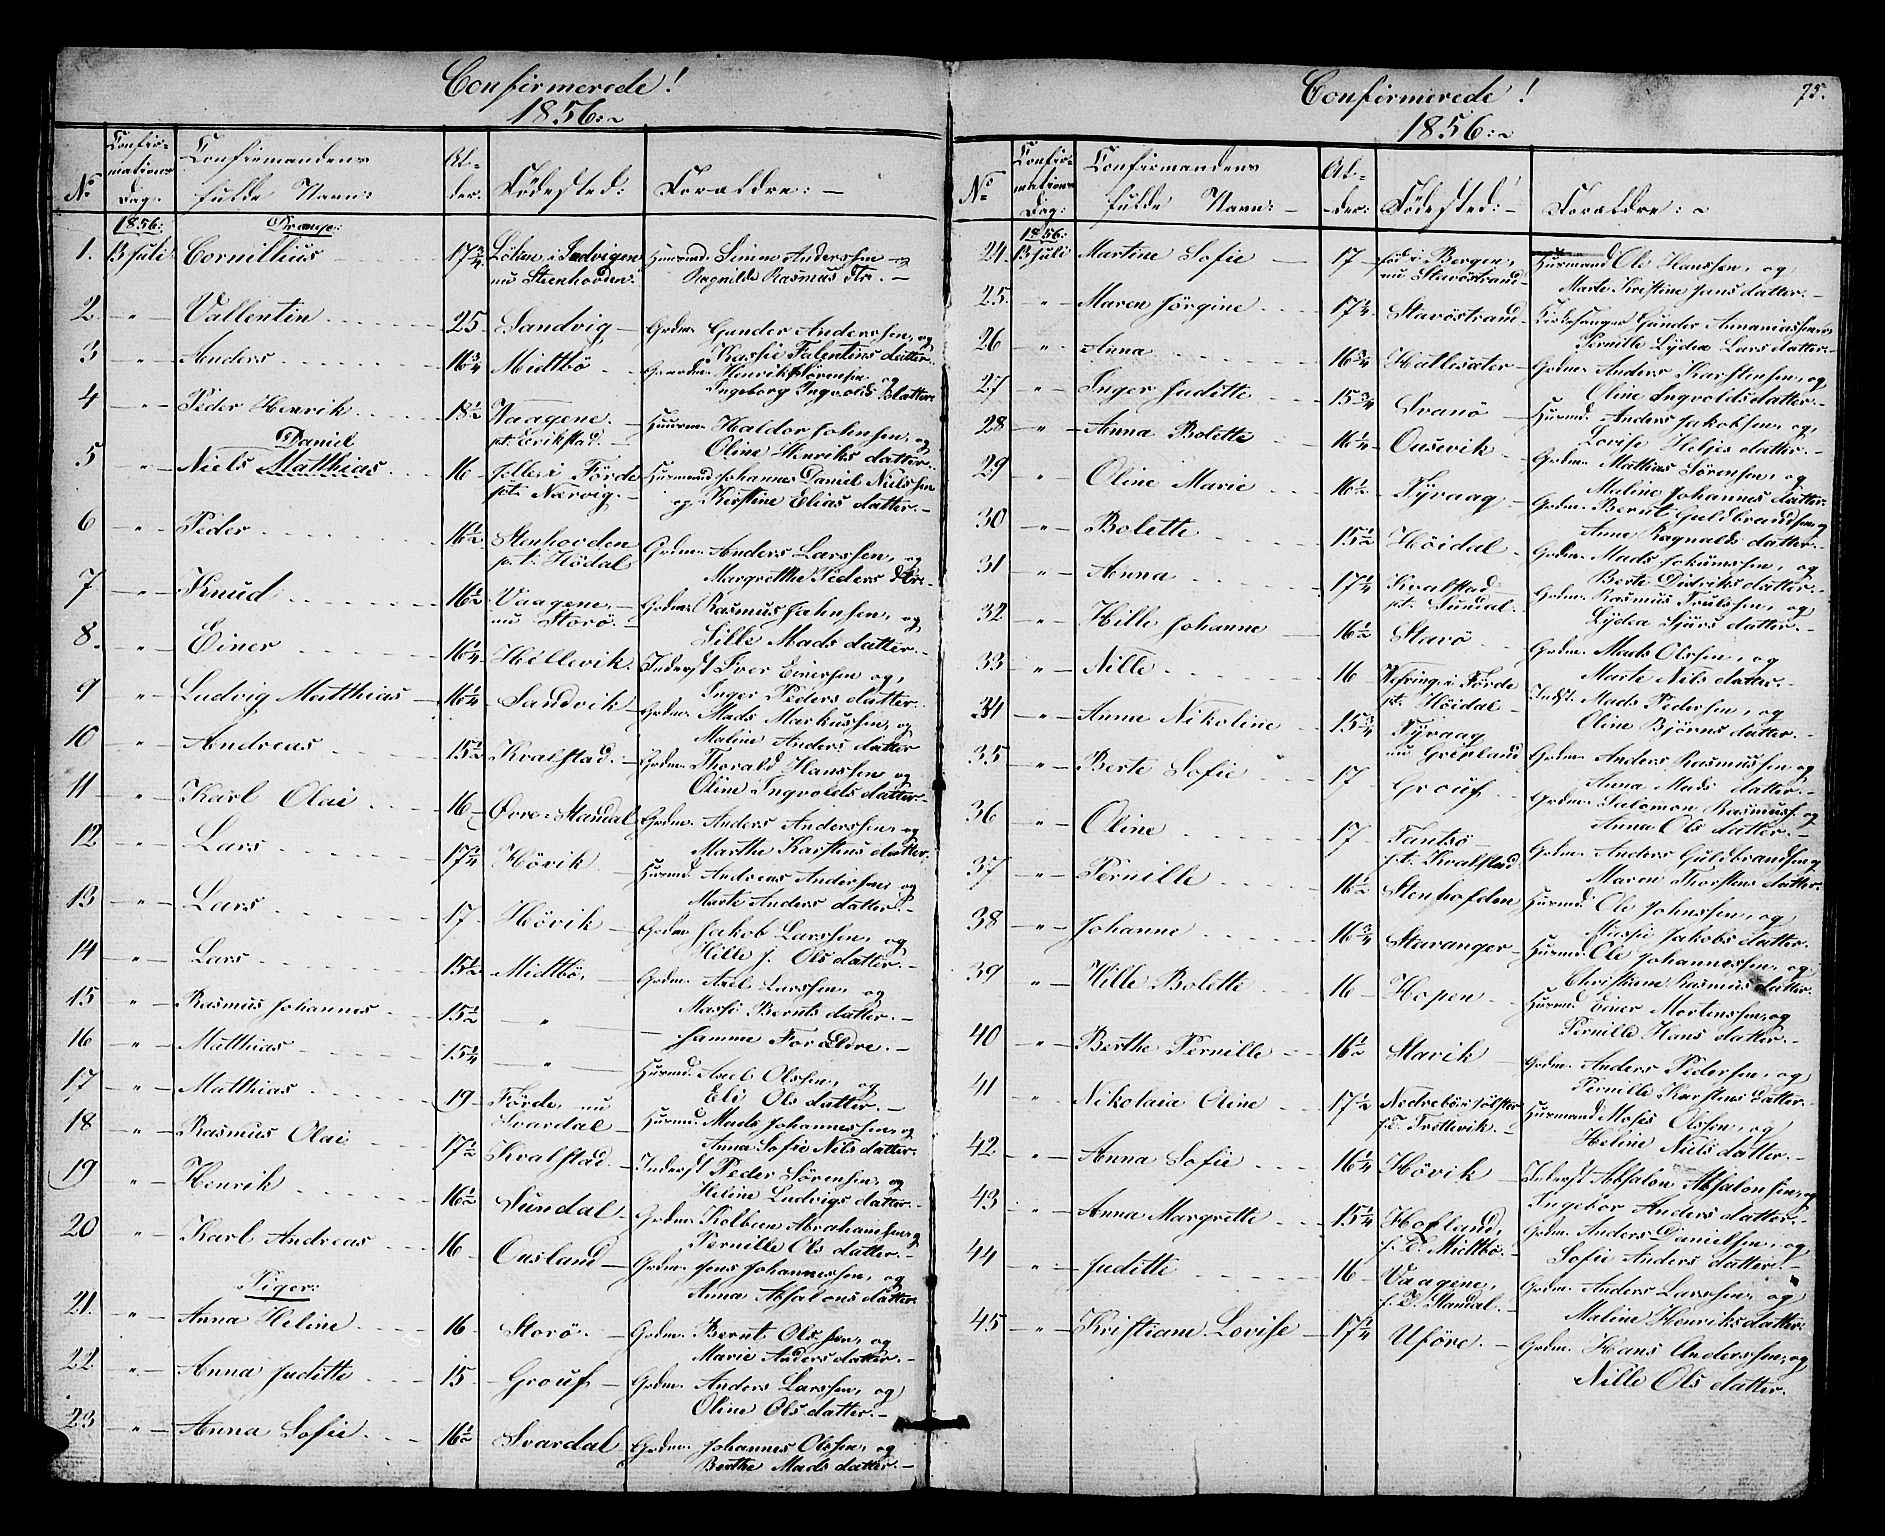 Confirmerede!
1856:
No Confirmations Dag: Confirmandens fulde Navn: Alder: Födested: Forældre:
1856: Drenge:
1. 13 Juli: Cornillius 17 3/4 Löken i Indvigen Huusmd: Simon Anderssen
nu Steenhovden: Ragnilde Rasmus dtr.
2. " Vallentin 25 Sandvig Grdm. Gunder Anderssen, og
Kassie Falentins datter
3 " Anders 16 3/4 Midtbö Gaardm. Henrik Sörensen og
Ingeborg Ingvolds Datter
4 " Peder Henrik 18 1/2 Vaagene Huusm. Haldor Johnsen, og
pt. Erikstad Oline Henriks datter
Daniel
5 " Niels Matthias 16 i Förde Husmand Johannes Daniel Nielssen
pt. Nærvig og Kirstine Elias datter
6 " Peder 16 1/2 Stenhovden Grdm. Anders Larssen, og
p.t. Hödal Margrethe Peders dtr.
7 " Knud 16 1/2 Vaagene Grdm. Rasmus Johnsen, og
nu Storö Sille Mads datter
8. " Einer 16 1/4 Hellevik Inderst Iver Einersen og,
Inger Peders datter
9 " Ludvig Matthias 16 1/4 Sandvik Grdm. Mads Markussen, og
Maline Anders datter
10 " Andreas 15 1/2 Kvalstad Grdm. Thorald Hanssen og
Oline Ingvolds datter
11 " Karl Olai 16 Övre Standal Grdm. Anders Anderssen, og
Marthe Karstens datter
12 " Lars 17 3/4 Hövik Husmd. Andreas Anderssen og
Marte Anders datter
13 " Lars 17 Hövik Grdm Jakob Larssen, og
Hille J. Ols datter
14 " Lars 15 1/2 Midtbö, Grdm. Axel Larssen, og
Massi Bernts datter
15 " Rasmus Johannes 15 1/2 " samme Forældre
16 " Matthias 15 1/4 " Husmd. Axel Olssen, og
Eli Ols datter
17 " Matthias 19 Förde, nu Husmd. Mads Johannessen, og
Svardal Anna Sofie Nils datter
18 " Rasmus Olai 17 1/2 Kvalstad Inderst Peder Sörensen, og
Heline Ludvigs datter
19 " Henrik 16 1/2 Sundal Grdm. Kolbein Abrahamsen, og
Pernille Ols datter
20 " Karl Andreas 16 Ousland Grdm. Jens Johannessen, og
Anna Absalons datter
Piger:
21. " Anna Heline 16 Storö. Grdm. Bernt Olssen, og
Marie Anders datter
22 " Anna Juditte 15 Grouf Grdm. Anders Larssen, og
Oline Ols datter
23 " Anna Sofie 16 1/2 Svardal Grdm. Johannes Olssen, og
Berthe Mads datter
Confirmerede! 75.
1856:
No Confirmations Dag: Confirmandens fulde Navn: Alder: Födested: Forældre:
1856:
24. 13 Juli Martine Sofie 17 föd i Bergen, Husmand Ole Hanssen, og
nu Stavöstrand Marte Kristine Jens datter
25. " Maren Jörgine 17 1/4 Stavöstrand Kirkesanger Gunder Annaniassen og
Pernille Lydea Lars datter
26 " Anna 16 3/4 Hallesæter Grdm. Anders Karstensen, og
Oline Ingvolds datter
27 " Inger Juditte 15 3/4 Svanö Husmd. Anders Jakobsen, og,
Lovise Heljes datter
28 " Anna Bolette 16 1/2 Ousevik Grdm. Mathias Sörensen, og
Maline Johannes datter
29 " Oline Marie 16 1/2 Tyvaag Grdm. Bernt Guldbrandsen og
Anne Ragnalds datter
30 " Bolette 15 1/2 Höidal Grdm. Mads Jokumssen, og
Berte Didriks datter
31 " Anna 17 1/4 Kvalstad Grdm. Rasmus Trulssen, og
pt. Sundal. Lydea Sjurs datter
32 " Hille Johanne 16 1/2 Stavö Grdm. Mads Olssen, og
Marte Nils datter
33 " Nille 16 Vefring i Förde Indst. Mads Pedersen, og
pt. Höidal Oline Björns datter
34 " Anna Nikoline 15 3/4 Tyvaag Grdm. Anders Rasmussen og
nu Grepland Anna Mads datter
35 " Berte Sofie 17 Grouf Grdm. Salomon Rasmuss. og
Anna Ols datter
36 " Oline 17 Tantsö Grdm. Anders Guldbrandsen og
p.t. Kvalstad Maren Thorstens datter
37 " Pernille 16 1/2 Stenhofden Husmd. Ole Johnssen, og
Massi Jakobs datter
38 " Johanne 16 3/4 Stavanger Husmd. Ole Johannessen, og
Christiane Rasmus datter
39 " Hille Bolette 16 Hopen Husmd. Einer Mortenssen, og
Pernille Hans datter
40 " Berthe Pernille 16 1/2 Stavik Grdm. Anders Pedersen, og
Pernille Karstens Datter
41 " Nikolaie Oline 17 1/2 Nedrebö i Jölster Husmand Moses Olssen, og
p.T. Trettevik Heline Niels datter
42 " Anna Sofie 16 1/4 Hövik Inderst Absalon Absalonsen, og
Ingebor Anders datter
43 " Anna Margrette 15 1/4 Hofland, Grdm. Anders Danielsen, og
p.T. Midtbö Sofie Anders datter
44 " Juditte 16 Vaagene, Grdm. Anders Larssen, og
p.T. Standal. Maline Henriks datter
45 " Kristiane Lovise 17 3/4 Uföre. Grdm. Hans Anderssen, og
Nille Ols datter.